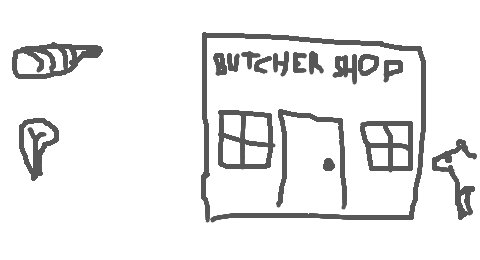 BUTCHER SHOP